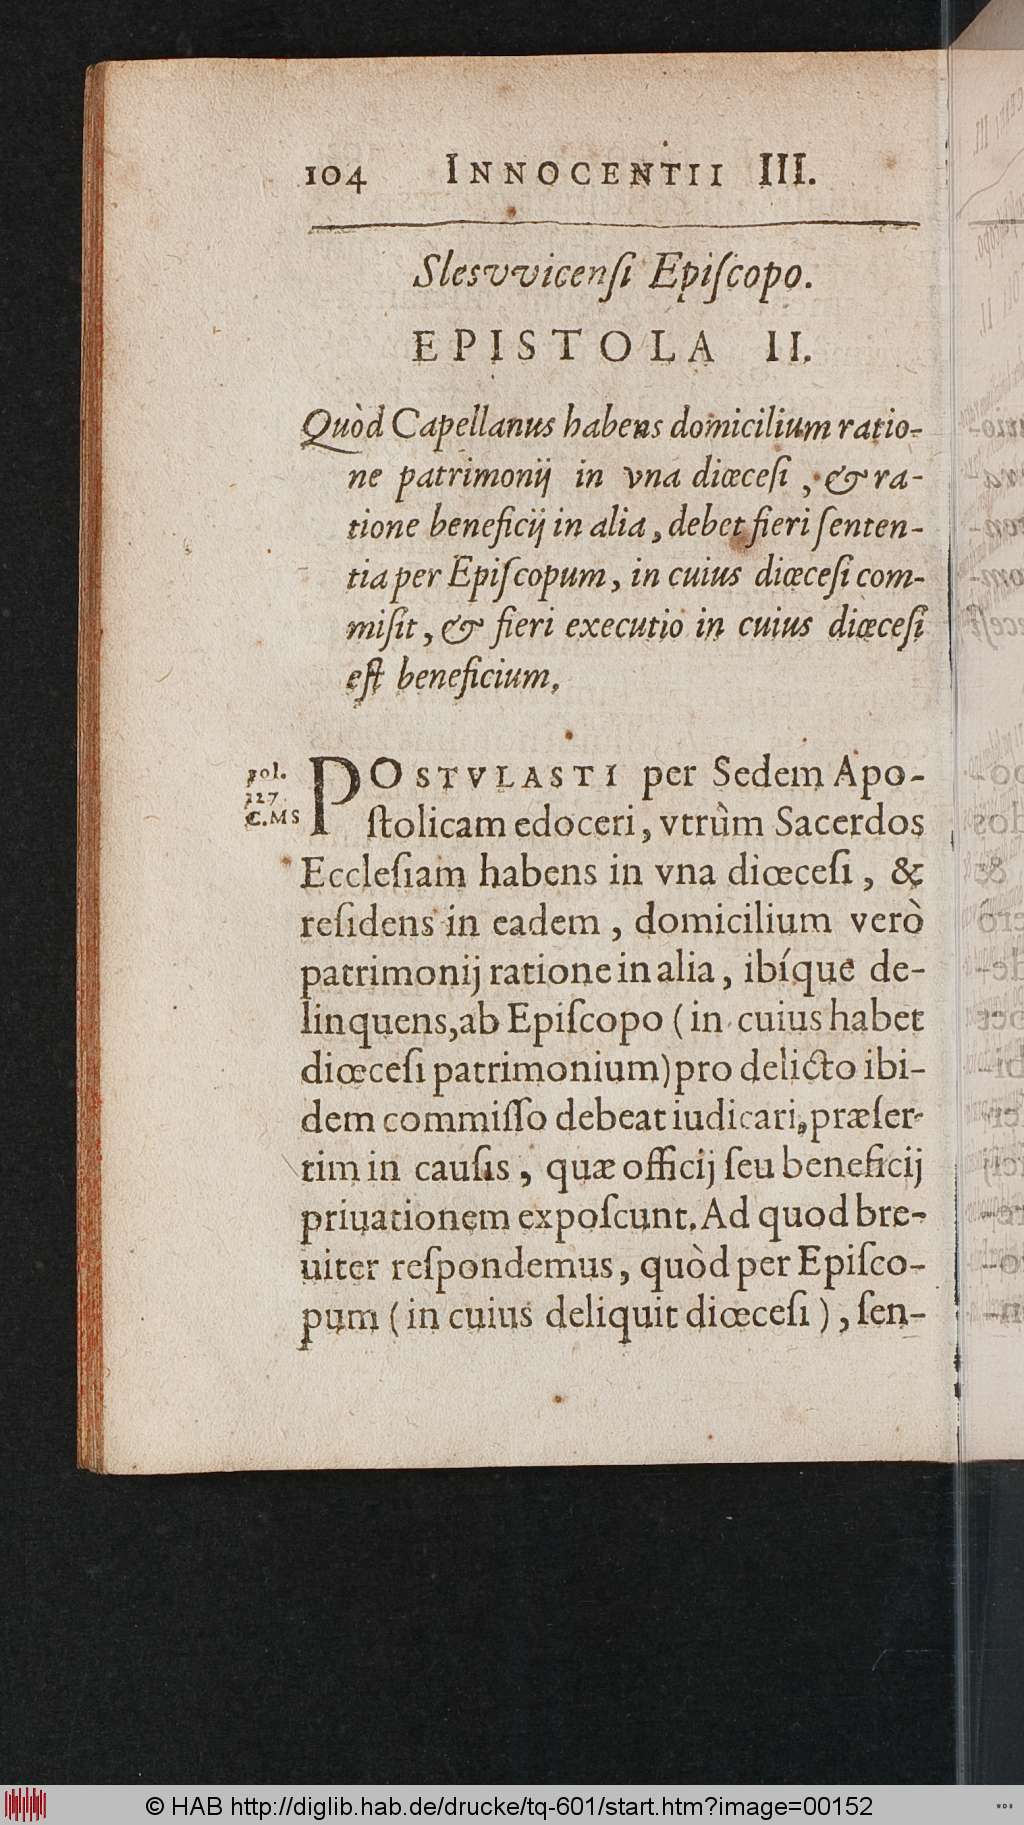 104 INNOCENTII III.
Slesvvicensi Episcopo.
EPISTOLA II.
Quòd Capellanus habens domicilium ratio-
ne patrimonij in vna diœcesi, & ra-
tione beneficij in alia, debet fieri senten-
tia per Episcopum, in cuius diœcesi com-
misit, & fieri executio in cuius diœcesi
est beneficium.
fol.
127
C.MS
POSTVLASTI per Sedem Apo-
ſtolicam edoceri, vtrùm Sacerdos
Eccleſiam habens in vna diœceſi, &
reſidens in eadem, domicilium verò
patrimonij ratione in alia, ibíque de-
linquens, ab Epiſcopo (in cuius habet
diœceſi patrimonium) pro delicto ibi-
dem commiſſo debeat iudicari, præſer-
tim in cauſis, quæ officij ſeu beneficij
priuationem expoſcunt. Ad quod bre-
uiter reſpondemus, quòd per Epiſco-
pum (in cuius deliquit diœceſi), ſen-
© HAB http://diglib.hab.de/drucke/tq-601/start.htm?image=00152